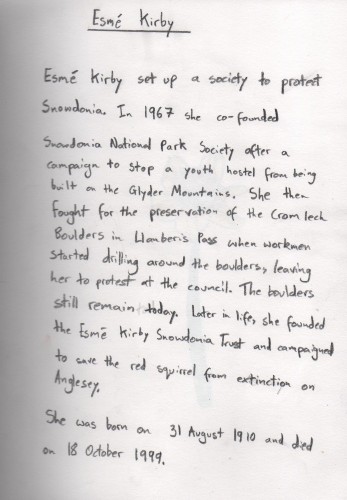 Esmé Kirby
Esmé Kirby set up a society to protest
Snowdonia. In 1967 she co-founded
Snowdonia National Park Society after a
campaign to stop a youth hostel from being
built on the Glyder Mountains. She then
fought for the preservation of the Cromlech
Boulders in Llanberis Pass when workmen
started drilling around the boulders, leaving
her to protest at the council. The boulders
still remain today. Later in life, she founded
the Esmé Kirby Snowdonia Trust and campaigned
to save the red squirrel from extinction on
Anglesey.
She was born on 31 August 1910 and died
on 18 October 1999.